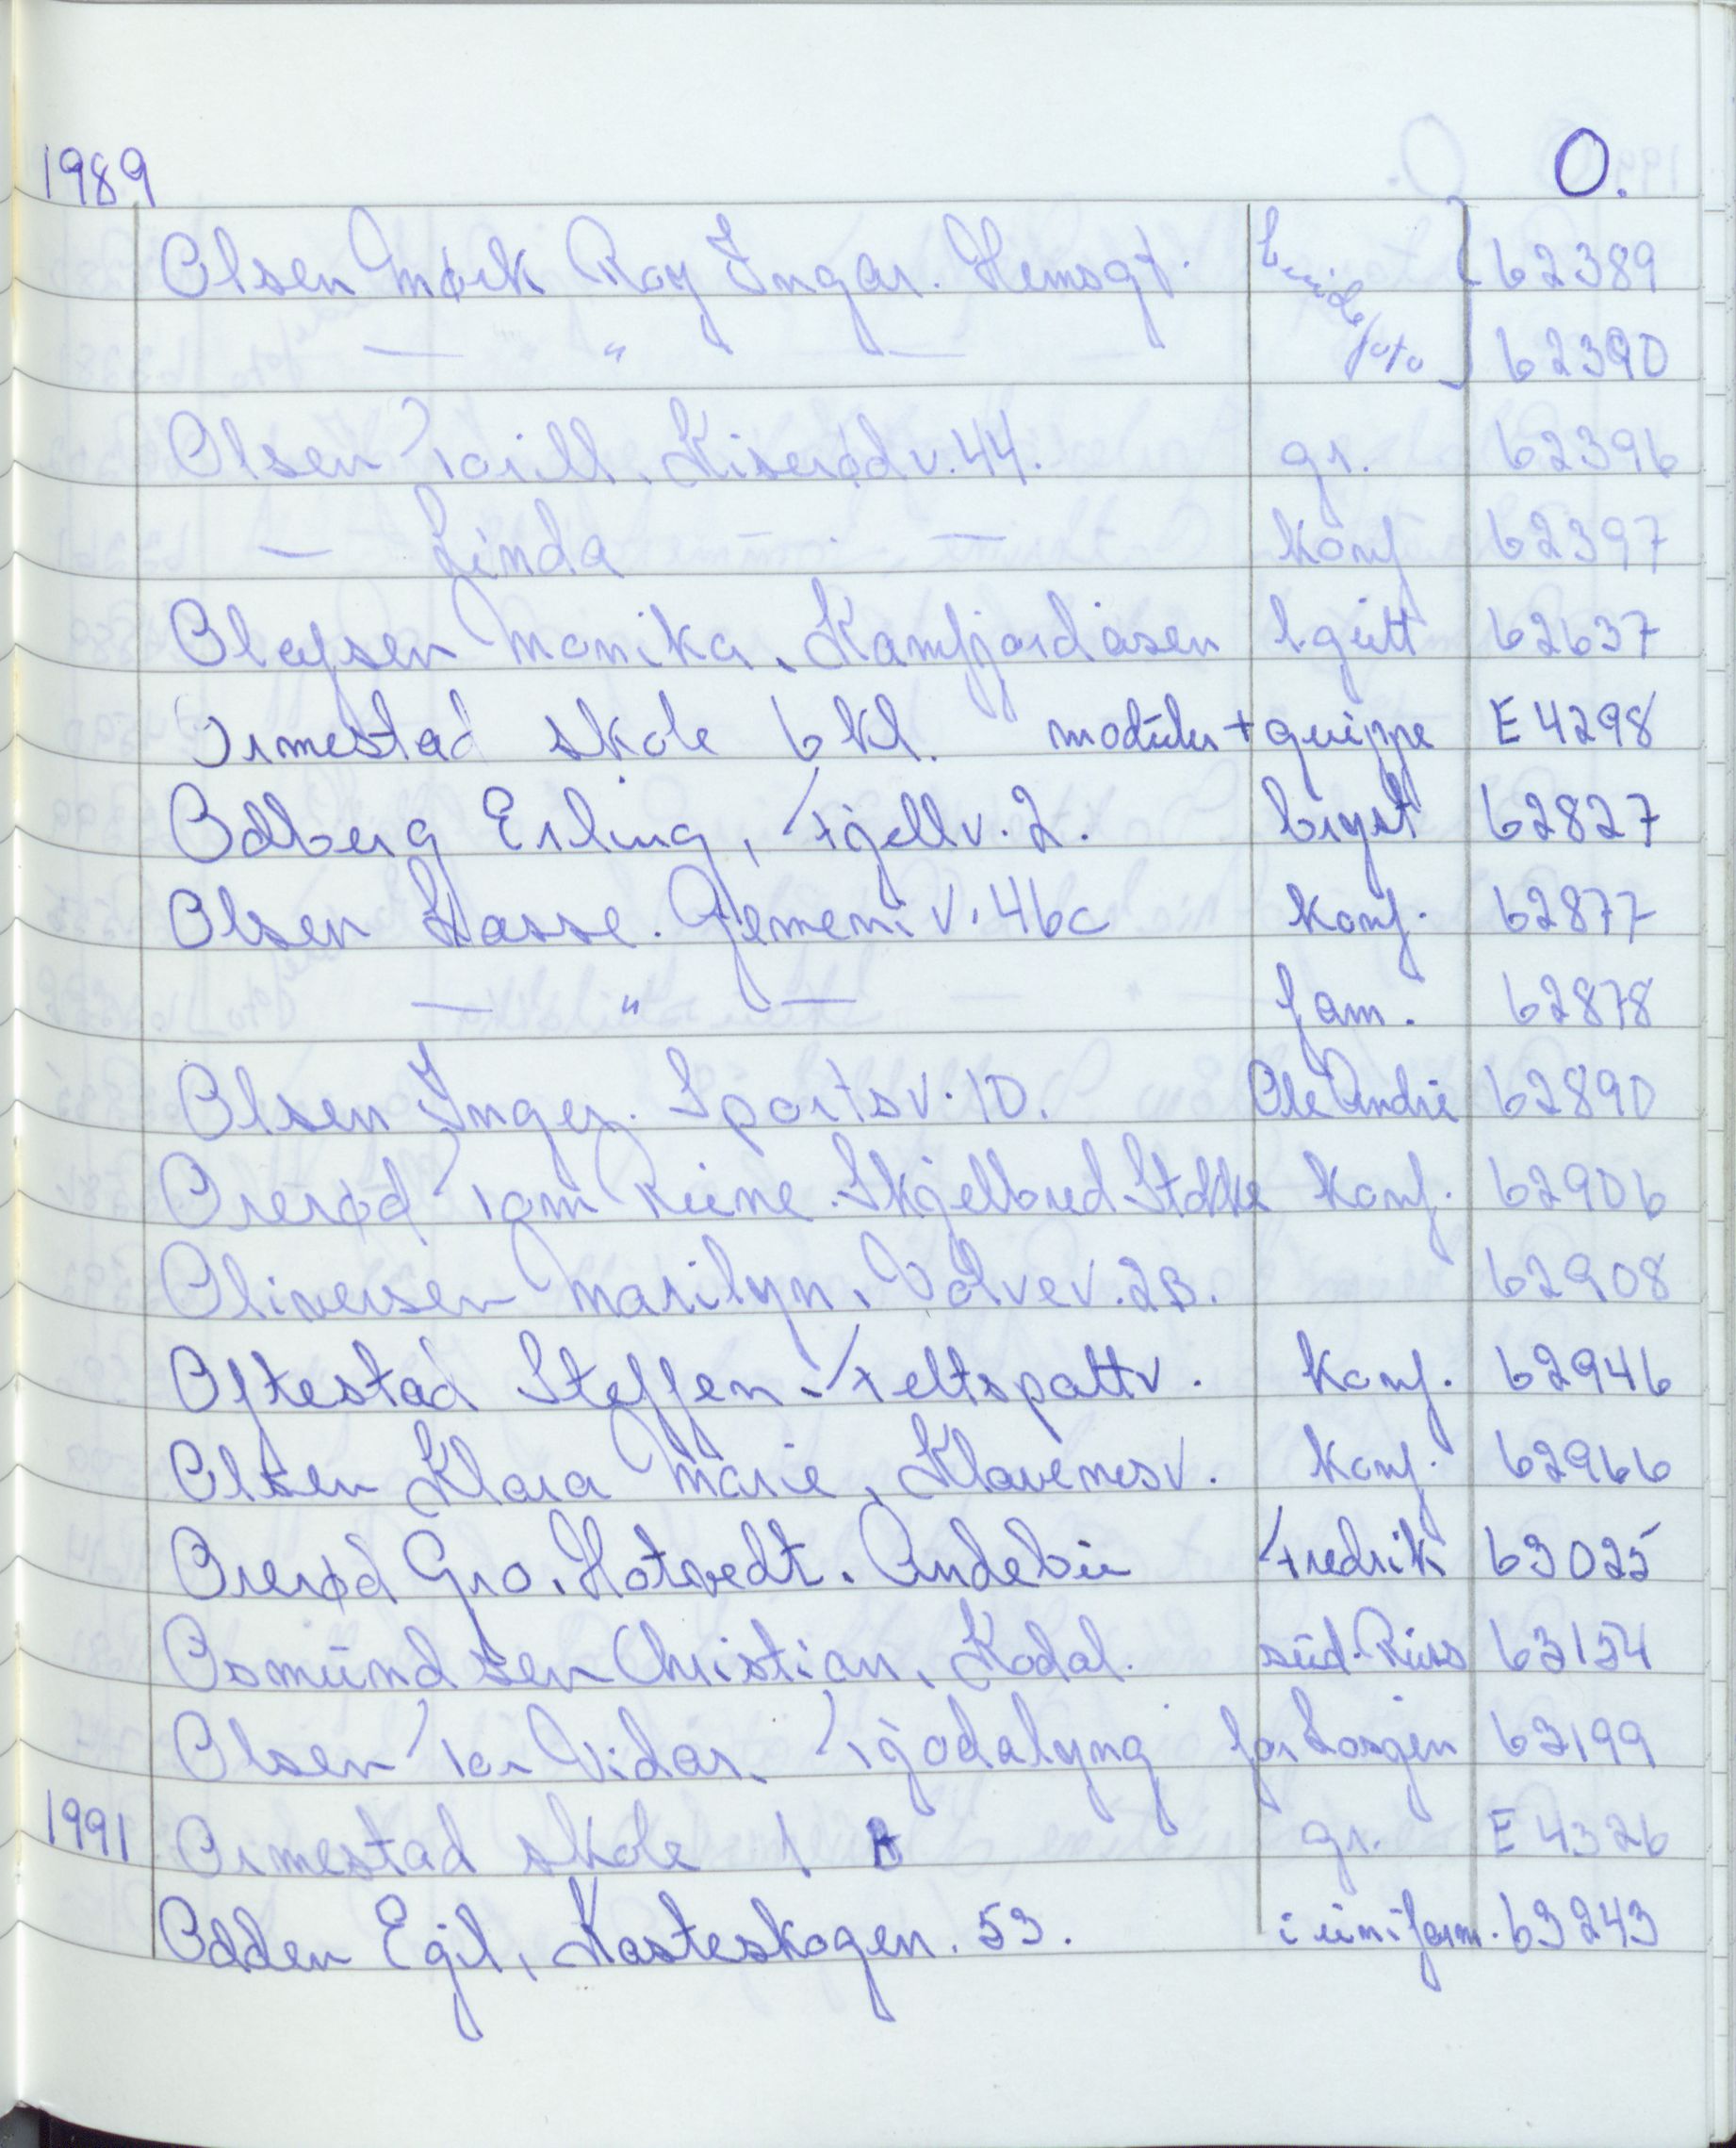 1989 O.
Olsen Mørk Roy Ingar. Hemsgt. brudefoto } 62389
— " — 62390
Olsen Torill. Kiserødv. 44. gr. 62396
— Linda — konf 62397
Olafsen Monika. Kamfjordåsen l.gutt 62637
Ormestad skole 6 kl. moduler + gruppe E 4298
Odberg Erling, Fjellv. 2. bryst 62827
Olsen Lasse. Gemeni V. 46c konf. 62877
— " — fam. 62878
Olsen Inger. Sportsv. 10. Ole Andre 62890
Orerød Tom Rune. Skjelbred Stokke konf. 62906
Oliversen Marilyn. Vølvev. 2B. 62908
Oftestad Steffen. Feltspattv. konf. 62946
Olsen Klara Marie, Klavenesv. konf. 62966
Orerød Gro. Hotvedt. Andebu Fredrik 63025
Osmundsen Christian. Kodal. stud. Russ 63154
Olsen Tor Vidar. Tjodalyng for Torgen 63199
1991 Ormestad skole 1 B gr. E 4326
Odden Egil, Kasteskogen. 53. i uniform. 63243